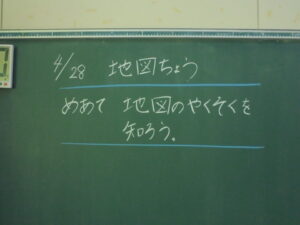 4/28 地図ちょう
めあて 地図のやくそくを
知ろう。